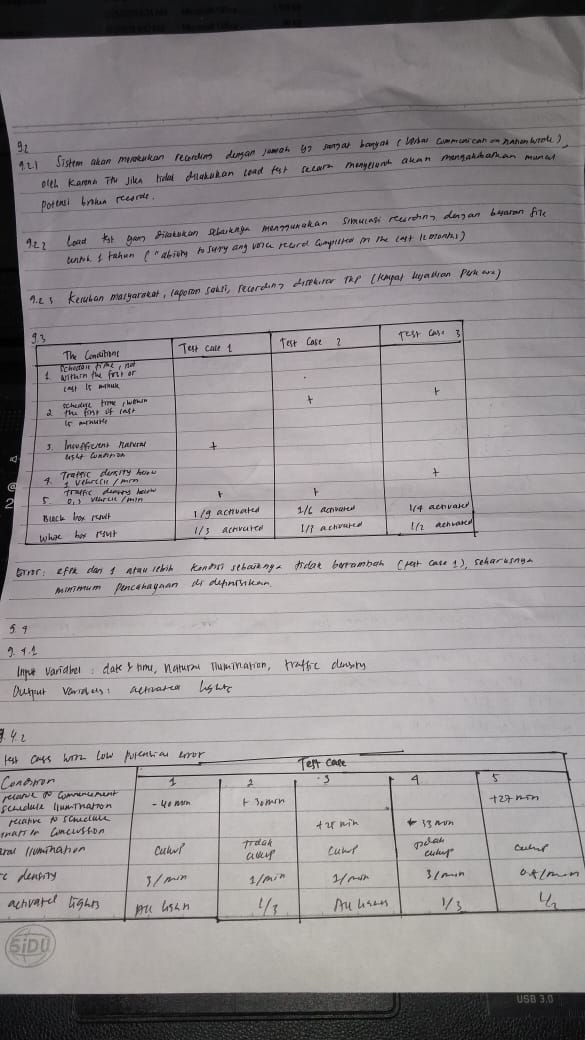 9.2
9.2.1 Sistem akan melakukan recording dengan jumlah yg sangat banyak (Verbal Communication nationwide),
oleh karena itu jika tidak dilakukan load test secara menyeluruh akan mengakibatkan muncul
potensi broken records.
9.2.2 Load test yang dilakukan sebaiknya menggunakan simulasi recording dengan besaran file
untuk 1 tahun ("ability to any voice record completed in the last 12 months)
9.2.3 Keluhan masyarakat, laporan saksi, recording disekitar TKP (tempat kejadian perkara)
9.3
The Conditions Test Case 1 Test Case 2 Test Case 3
1. Schedule time, not
within the first or
last 15 minute
2. Schedule time, within + +
the first or last
15 minute
3. Insufficient natural +
light condition
4. Traffic density below +
1 vehicle/min
5. Traffic density below + +
vehicle/min
Black box result 1/9 activated 1/6 activated 1/4 activated
White box result 1/3 activated 1/3 activated 1/2 activated
Error: efek dari 1 atau lebih kondisi sebaiknya tidak bertambah (test case 1), seharusnya
minimum pencahayaan di definisikan.
9.4
9.4.1
Input variabel : date & time, natural illumination, traffic density
Output variabels: activated lights
9.4.2
test cases with low potential error
Condition Test Case
1 2 3 4 5
relative to commencement - 40 min + 30 min +27 min
schedule illumination
relative to schedule +28 min 33 min
conclussion
illumination Cukup tidak cukup Cukup tidak cukup Cukup
density 3/min 1/min 3/min
activated lights All light 1/3 All lights 1/3 1/2
SiDU
USB 3.0